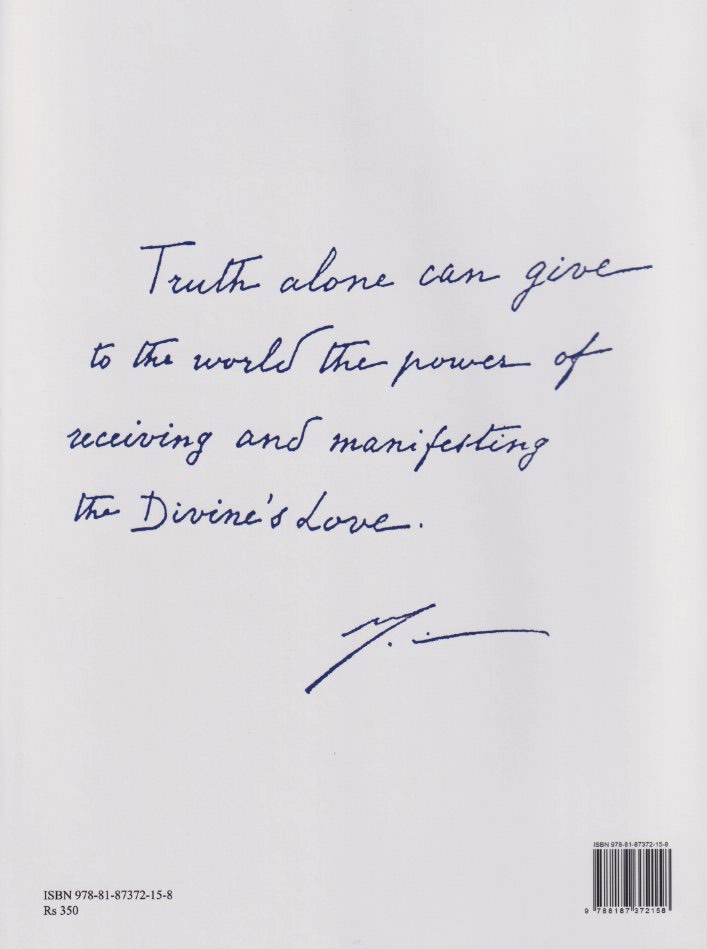 Truth alone can give
to the world the power of
receiving and manifesting
the Divine's Love.
ISBN 978-81-87372-15-8
ISBN 978-81-87372-15-8
Rs 350
9 788187 372158